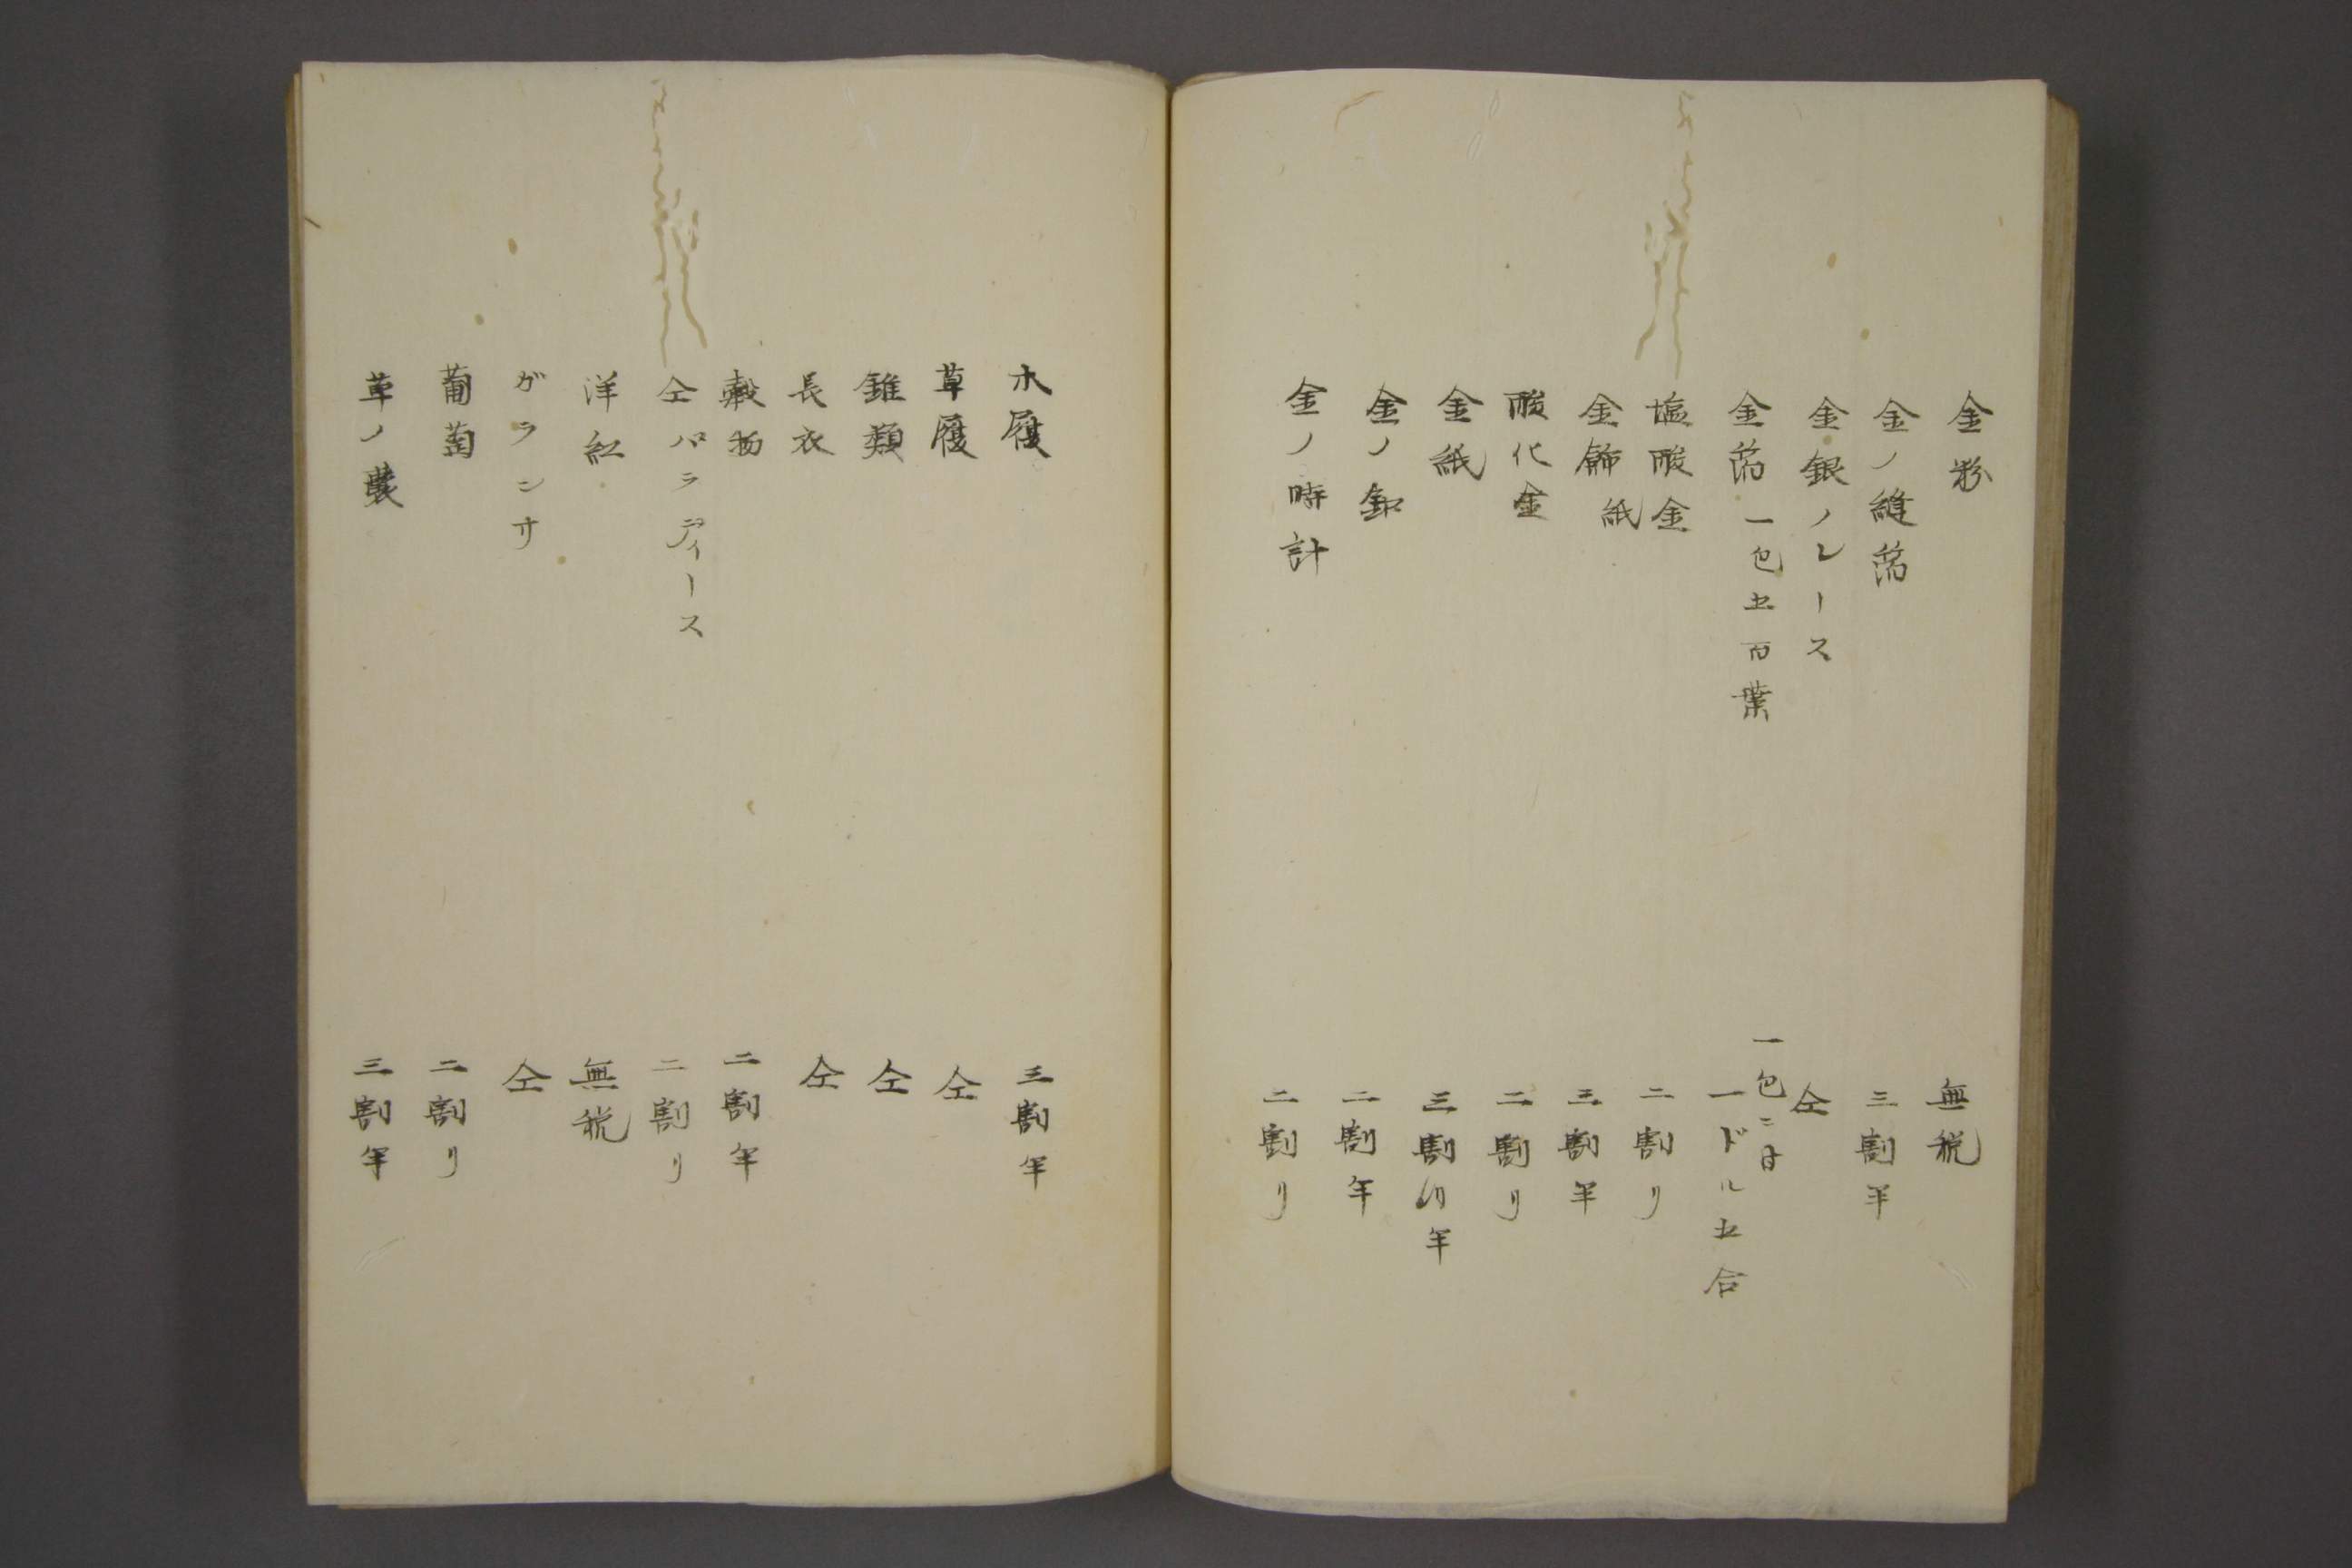 金粉　無税
金ノ縫箔　三割半
金銀ノレース　仝
金箔一包五百葉　一包ニ付
一ドル五合
塩酸金　二割リ
金飾紙　三割半
酸化金　二割リ
金紙　三割リ半
金ノ釦　二割半
金ノ時計　二割リ
木履　三割半
草履　仝
錐類　仝
長衣　仝
穀物　二割半
仝パラディース　二割リ
洋紅　無税
ガランサ　仝
葡萄　二割リ
草ノ装　三割半